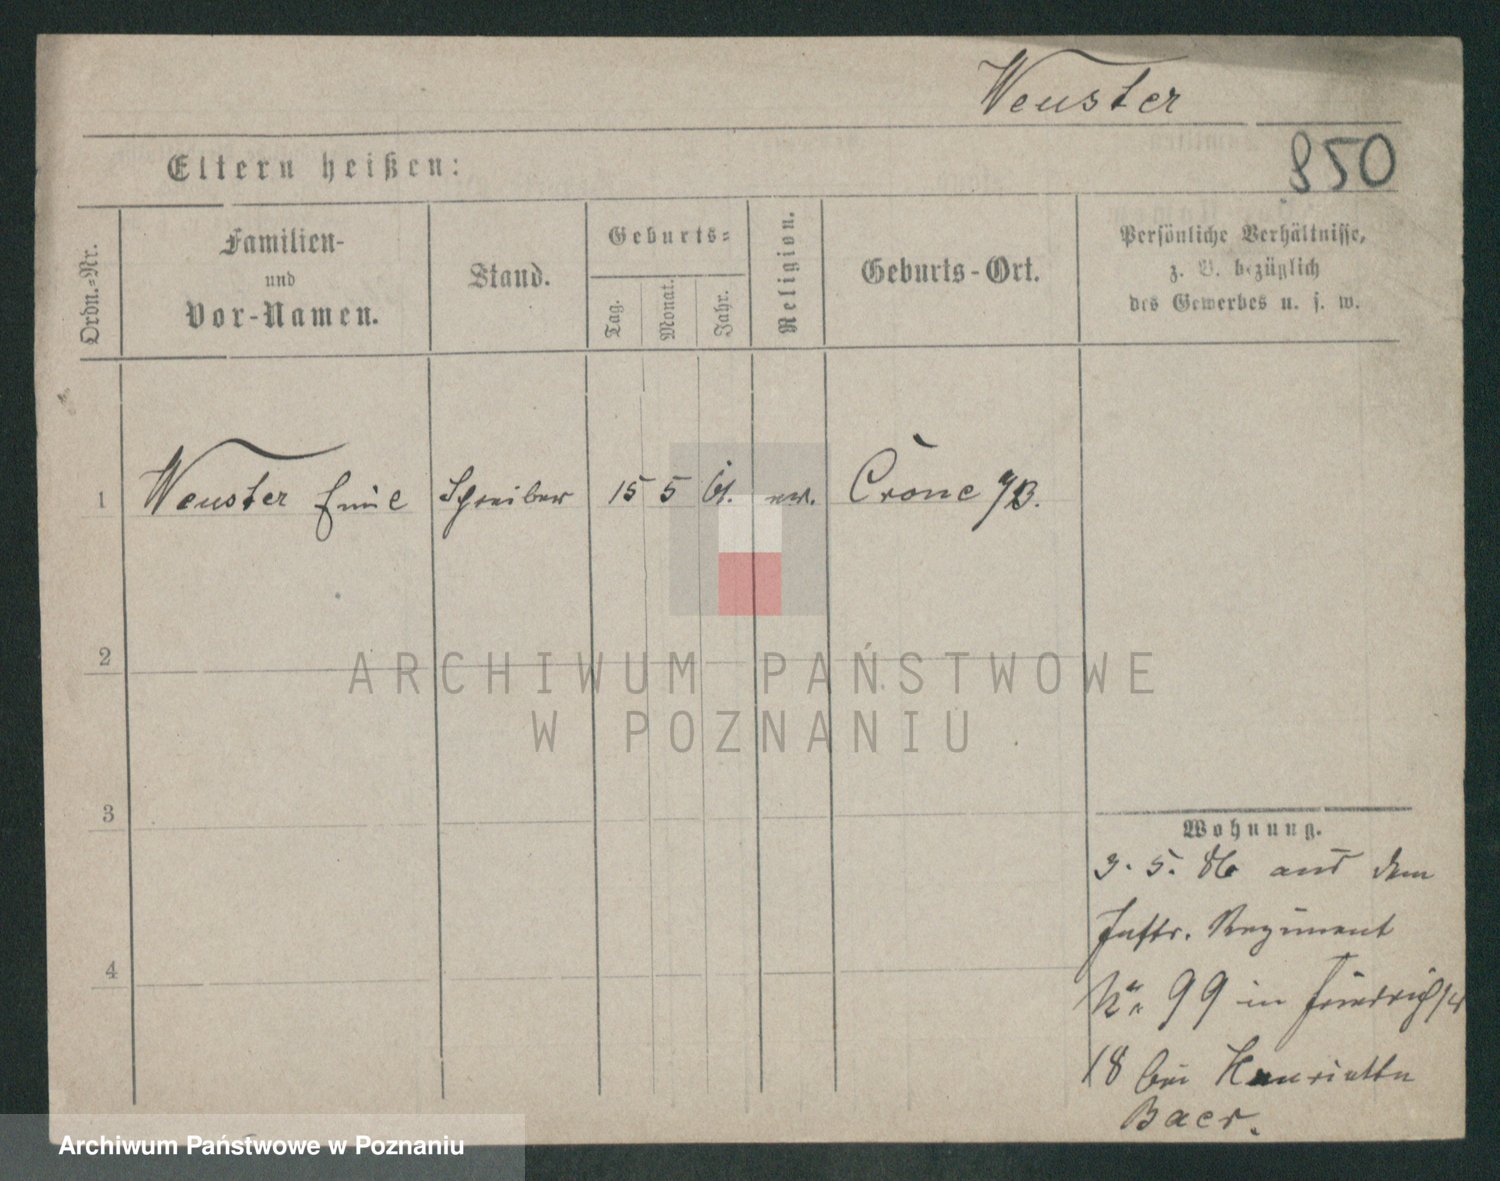 Weuster
850
Eltern heißen:
Ordn.-Nr.
Familien-
und
Vor-Namen.
Stand.
Geburts-
Tag.
Monat.
Jahr.
Religion.
Geburts-Ort.
Persönliche Verhältnisse,
z. B. bezüglich
des Gewerbes u. s. w.
1 Weuster Emil Schreiber 15 5 61. ev. Crone a/B.
2
3
4
Wohnung.
3. 5. 86 aus dem
Inftr. Regiment
No 99 in Friedrichstr
18 bei Henriette
Baer.
ARCHIWUM PAŃSTWOWE
W POZNANIU
Archiwum Państwowe w Poznaniu